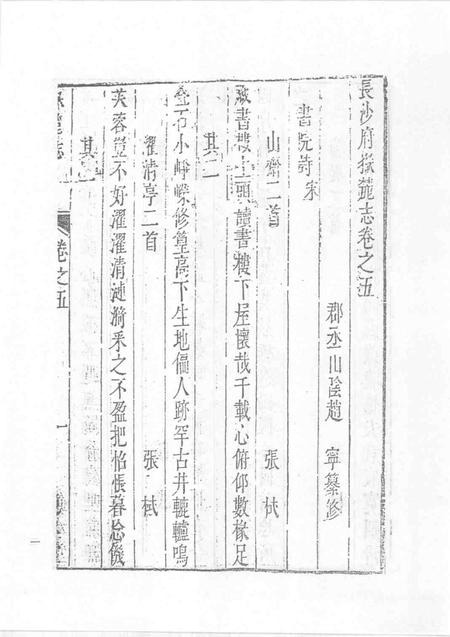 長沙府嶽麓志卷之五
郡丞山陰趙　寧纂修
書院詩宋
山齋二首　張栻
藏書樓上頭讀書樓下屋懷哉千載心俯仰數椽足
其二
疊石小崢嶸修篁高下生地偏人跡罕古井轆轤鳴
濯清亭二首　張栻
芙蓉豈不好濯濯清漣漪采之不盈把惆悵暮忘饑
其二
嶽麓志
卷之五
一